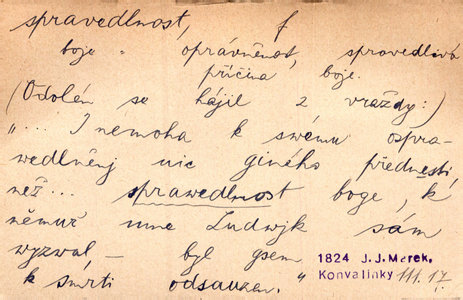 spravedlnost, f
boje „ oprávněnost, spravedlivá
příčina boje.
(Odolén se hájil z vraždy:)
„... I nemoha k swému ospra-
wedlněnj nic giného přednésti,
než... sprawedlnost boge, k
němuž mne Ludwjk sám
wyzwal – byl gsem
k smrti odsauzen."
1824 J.J.Marek,
Konvalinky III.17.